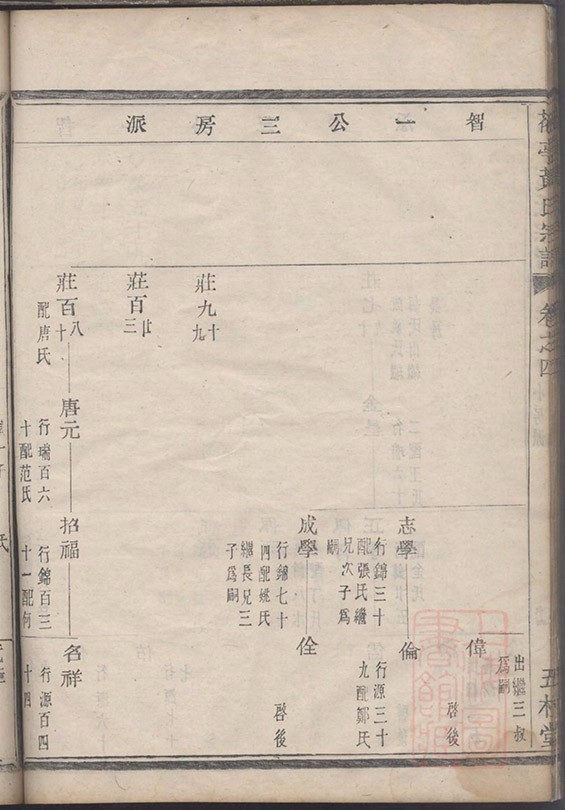 黃氏宗譜 卷之四
智一公三房派
出繼三叔
爲嗣
偉
啓後
志學
行錦三十
配張氏繼
兄次子爲
嗣
倫
行源三十
九配鄭氏
成學
行錦七十
四配姚氏
繼長兄三
子爲嗣
佺
啓後
莊九十
九
莊百廿
三
莊百十八
配唐氏
唐元
行瑞百六
十配范氏
招福
行錦百三
十一配
名祥
行源百四
十四